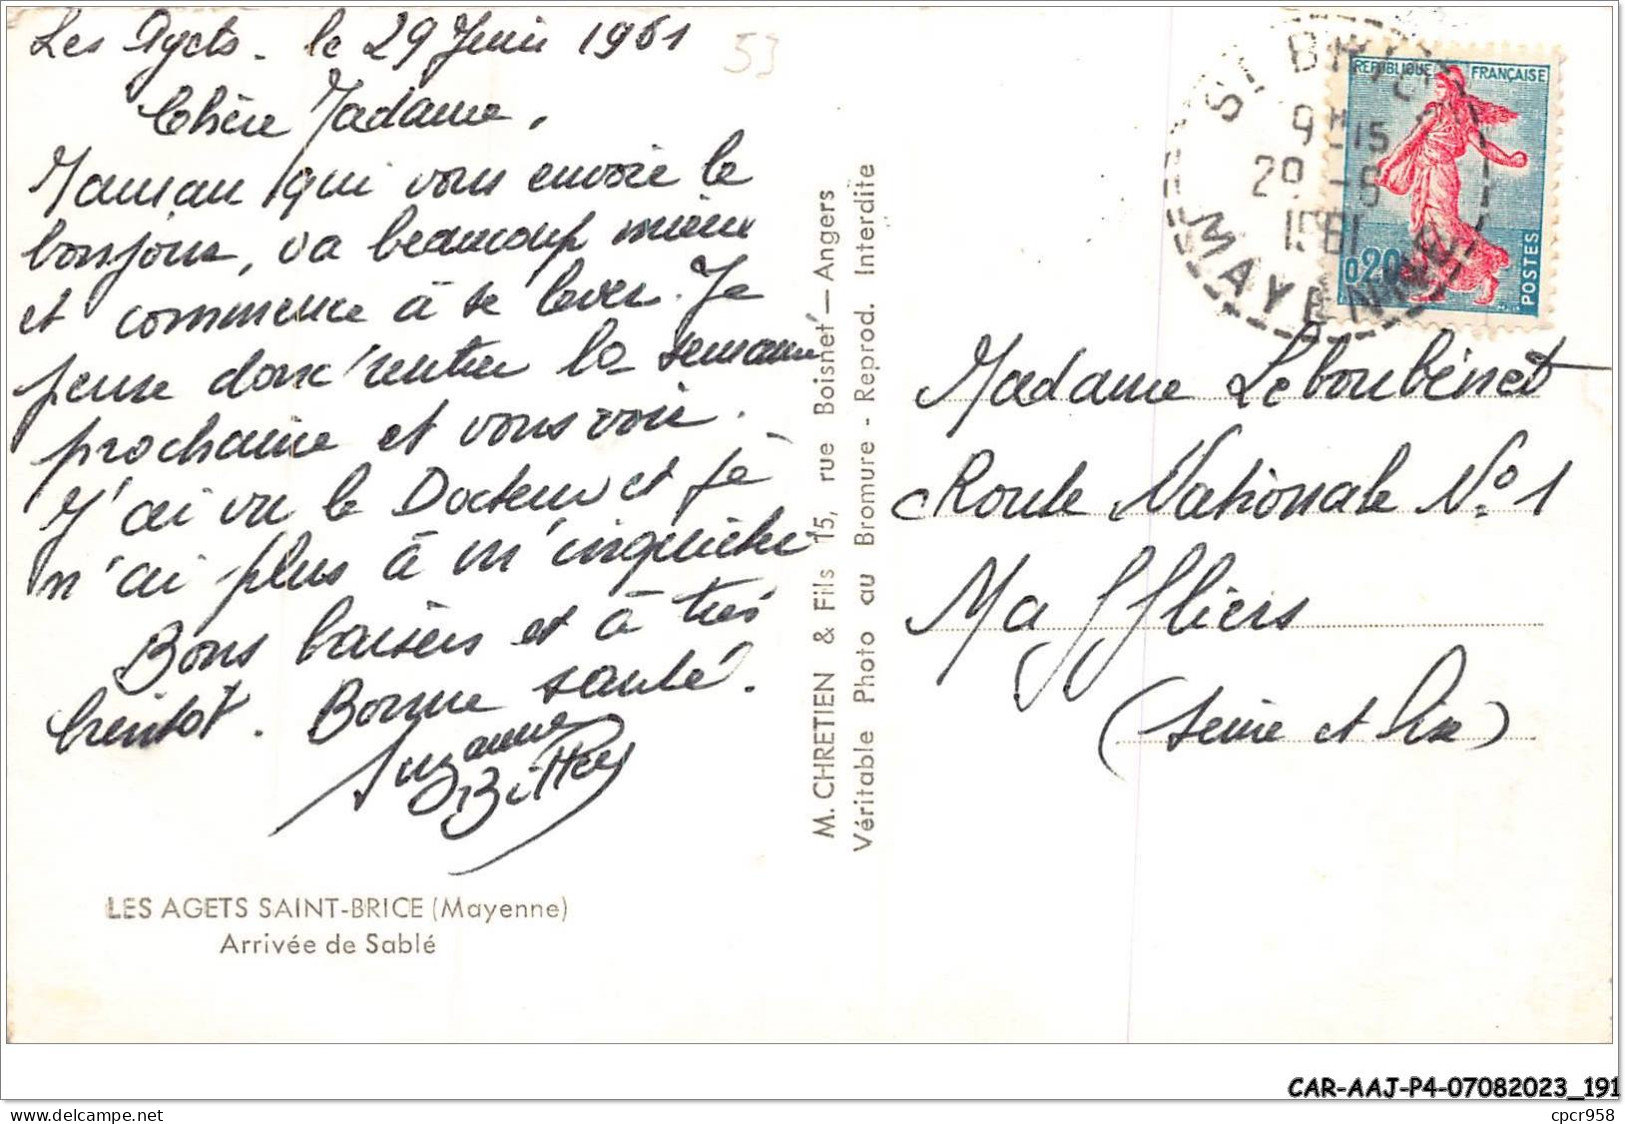 Les Agets - le 29 Juin 1961
53
Chère Madame,
Maman qui vous envoie le
bonjour, va beaucoup mieux
et commence à se lever. Je
pense donc rentrer la semaine
prochaine et vous voir.
J'ai vu le Docteur et je
n'ai plus à m'inquiéter
Bons baisers et à très
bientôt. Bonne santé.
Suzanne
LES AGETS SAINT-BRICE (Mayenne)
Arrivée de Sablé
M. CHRETIEN & Fils 15, rue Boisnet — Angers
Véritable Photo au Bromure - Reprod. Interdite
ST BRICE
9H15
29 -6
1961
MAYENNE
REPUBLIQUE FRANÇAISE
0,20
POSTES
Madame Leboubénet
Route Nationale No 1
Maffliers
(Seine et Oise)
CAR-AAJ-P4-07082023_191
www.delcampe.net
cpcr958